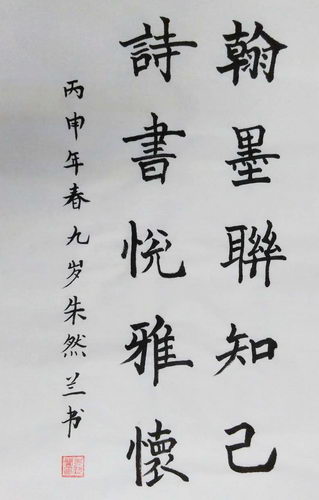 翰墨聯知己
詩書悅雅懷
丙申年春九岁朱然兰书